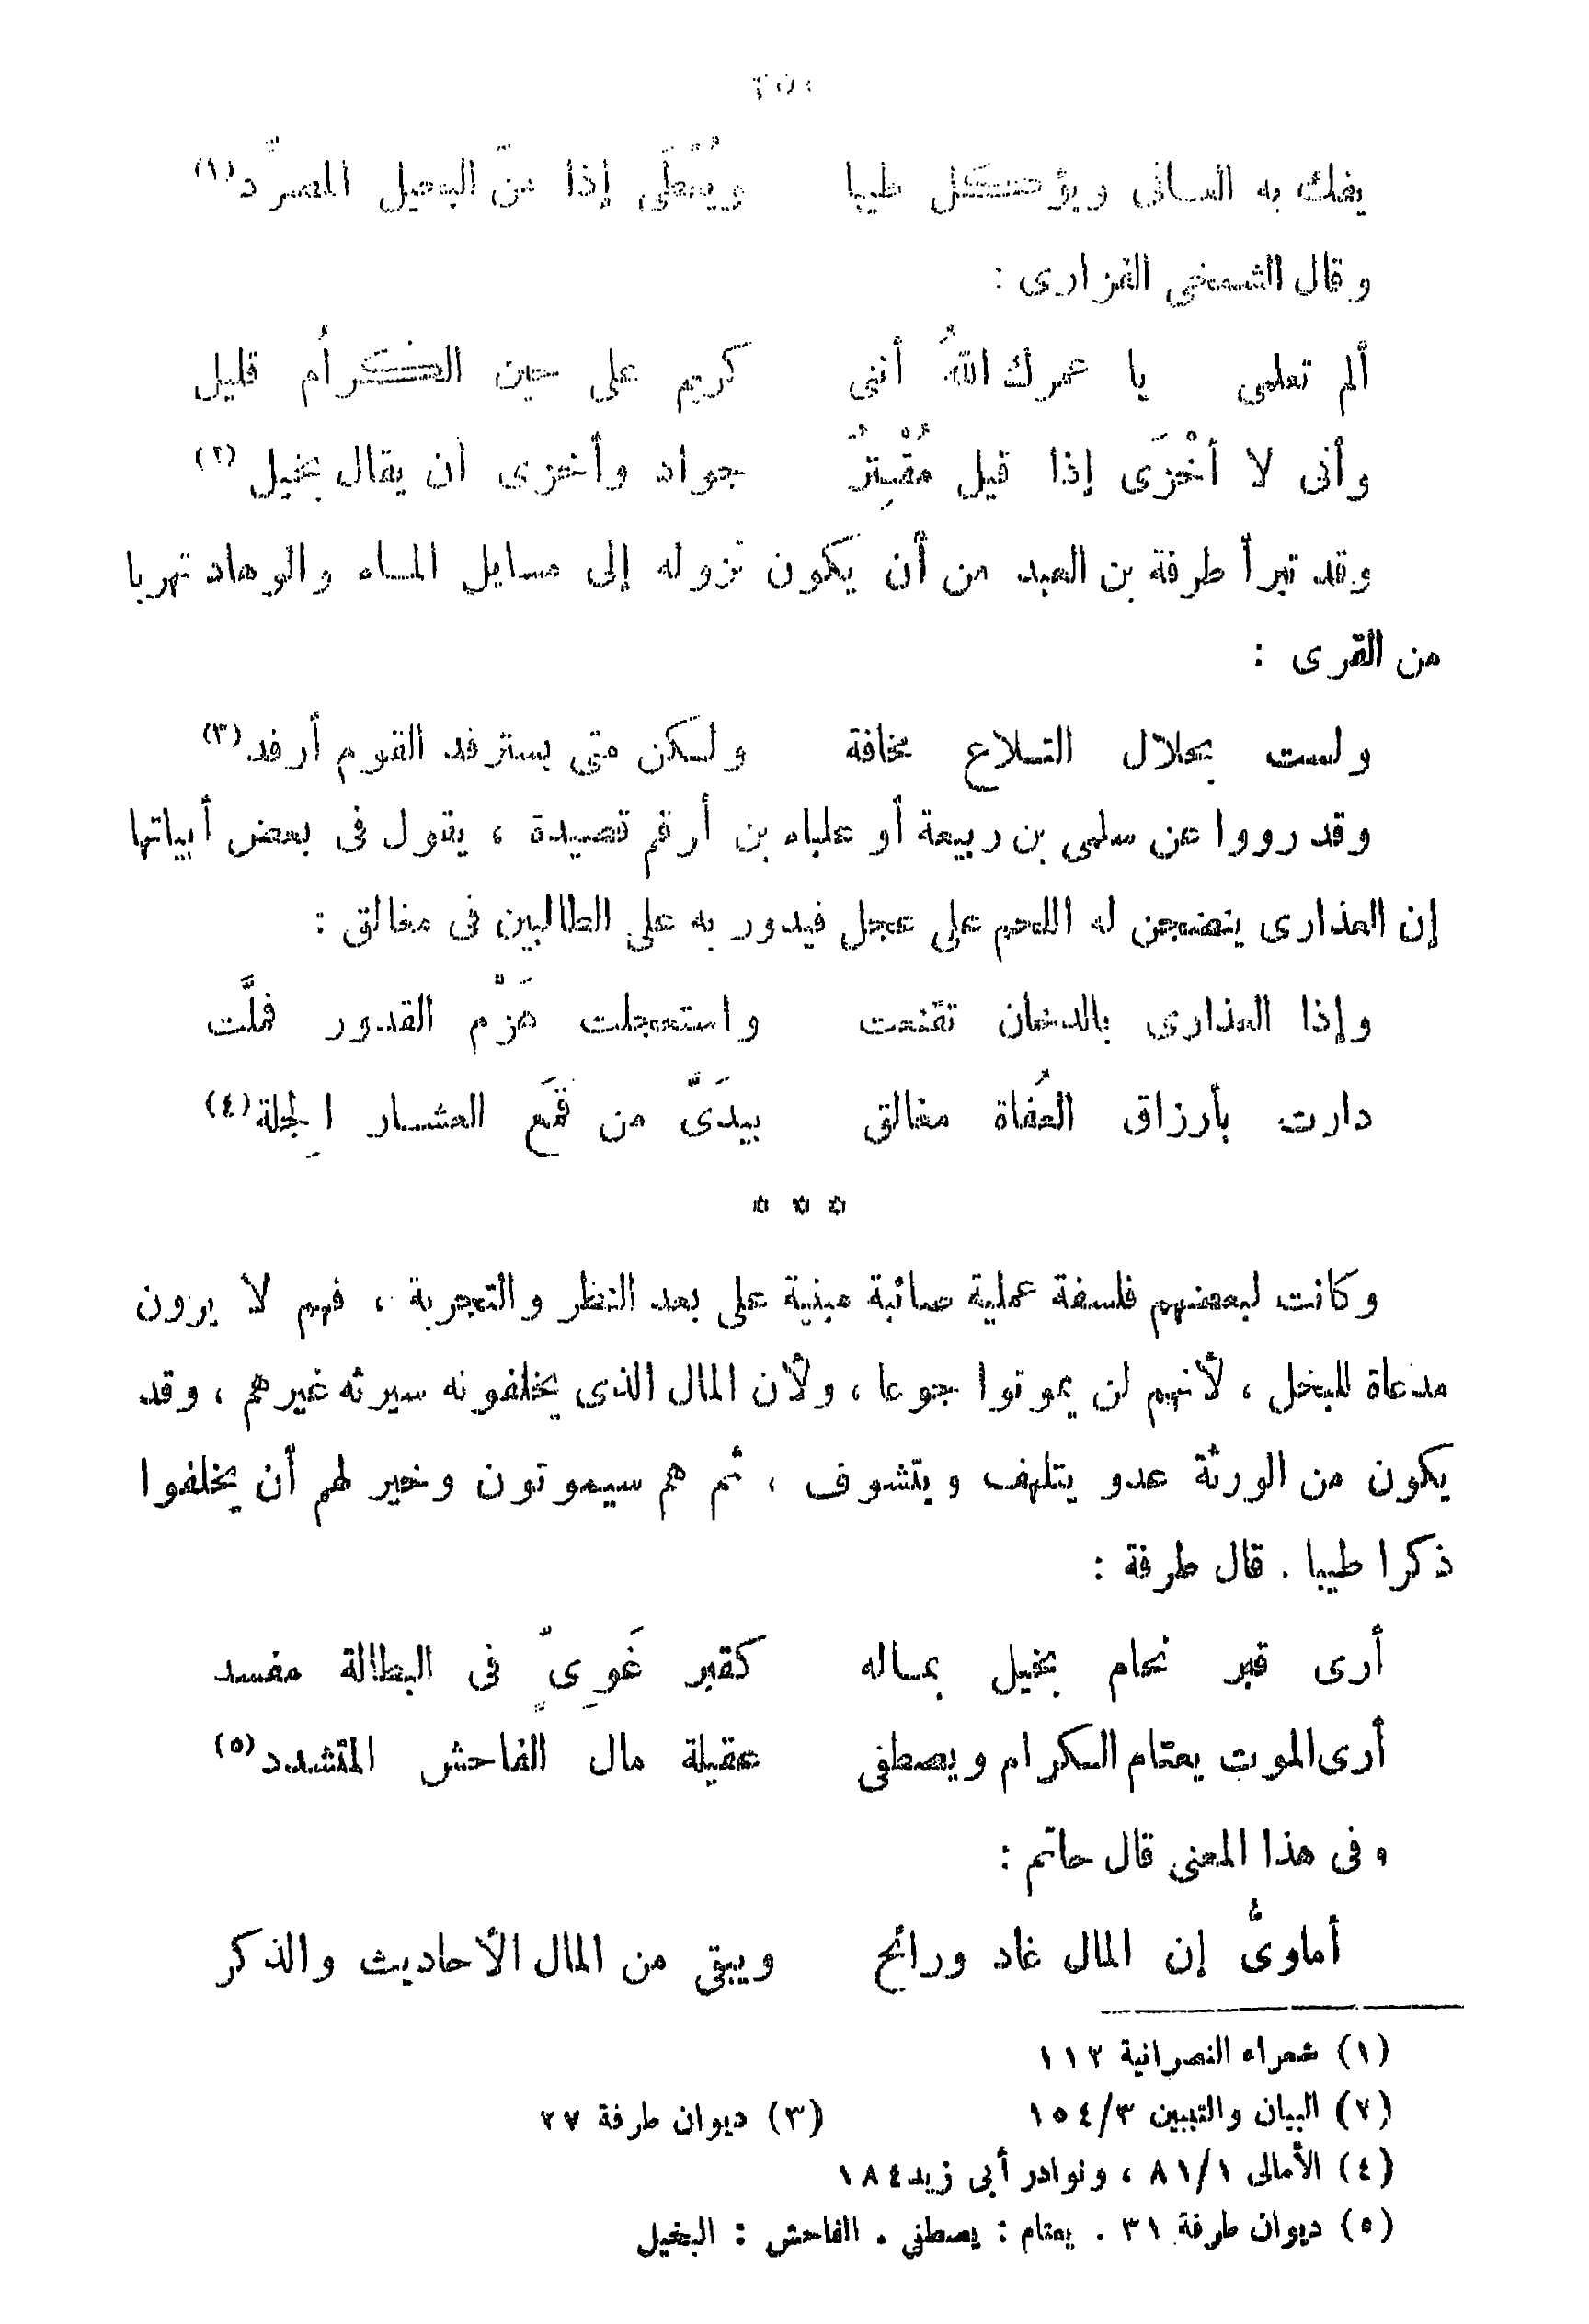 يفك به العانى ويؤكل طيبا ويُعْطَى إذا منّ البخيل المصرّد (١)
وقال الشمخى الفزارى :
ألم تعلمى يا عمرك اللهُ أننى كريم على حين الكرامُ قليل
وأنى لا أخْزَى إذا قيل مُقْتِرٌ جواد وأخزى أن يقال بخيل (٢)
وقد تبرأ طرفة بن العبد من أن يكون نزوله إلى مسايل الماء والوهاد تهربا
من القرى :
ولست بحلال التلاع مخافة ولكن متى يسترفد القوم أرفد (٣)
وقد رووا عن سلمى بن ربيعة أو علباء بن أرقم قصيدة ، يقول فى بعض أبياتها
إن العذارى ينضجن له اللحم على عجل فيدور به على الطالبين فى مغالق :
وإذا العذارى بالدخان تقنعت واستعجلت هَزْم القدور فملَّت
دارت بأرزاق العُفاة مغالق بيدَىَّ من قَمَع العشار الجِلة (٤)
* * *
وكانت لبعضهم فلسفة عملية صائبة مبنية على بعد النظر والتجربة ، فهم لا يرون
مدعاة للبخل ، لأنهم لن يموتوا جوعا ، ولأن المال الذى يخلفونه سيرثه غيرهم ، وقد
يكون من الورثة عدو يتلهف ويتشوف ، ثم هم سيموتون وخير لهم أن يخلفوا
ذكرا طيبا . قال طرفة :
أرى قبر نحام بخيل بماله كقبر غَوِىٍّ فى البطالة مفسد
أرى الموت يعتام الكرام ويصطفى عقيلة مال الفاحش المتشدد (٥)
وفى هذا المعنى قال حاتم :
أماوىُّ إن المال غاد ورائح ويبقى من المال الأحاديث والذكر
(١) شعراء النصرانية ١١٣
(٢) البيان والتبيين ١٥٤/٣ (٣) ديوان طرفة ٢٧
(٤) الأمالى ٨١/١ ، ونوادر أبى زيد ١٨٤
(٥) ديوان طرفة ٣١ . يعتام : يصطفى . الفاحش : البخيل